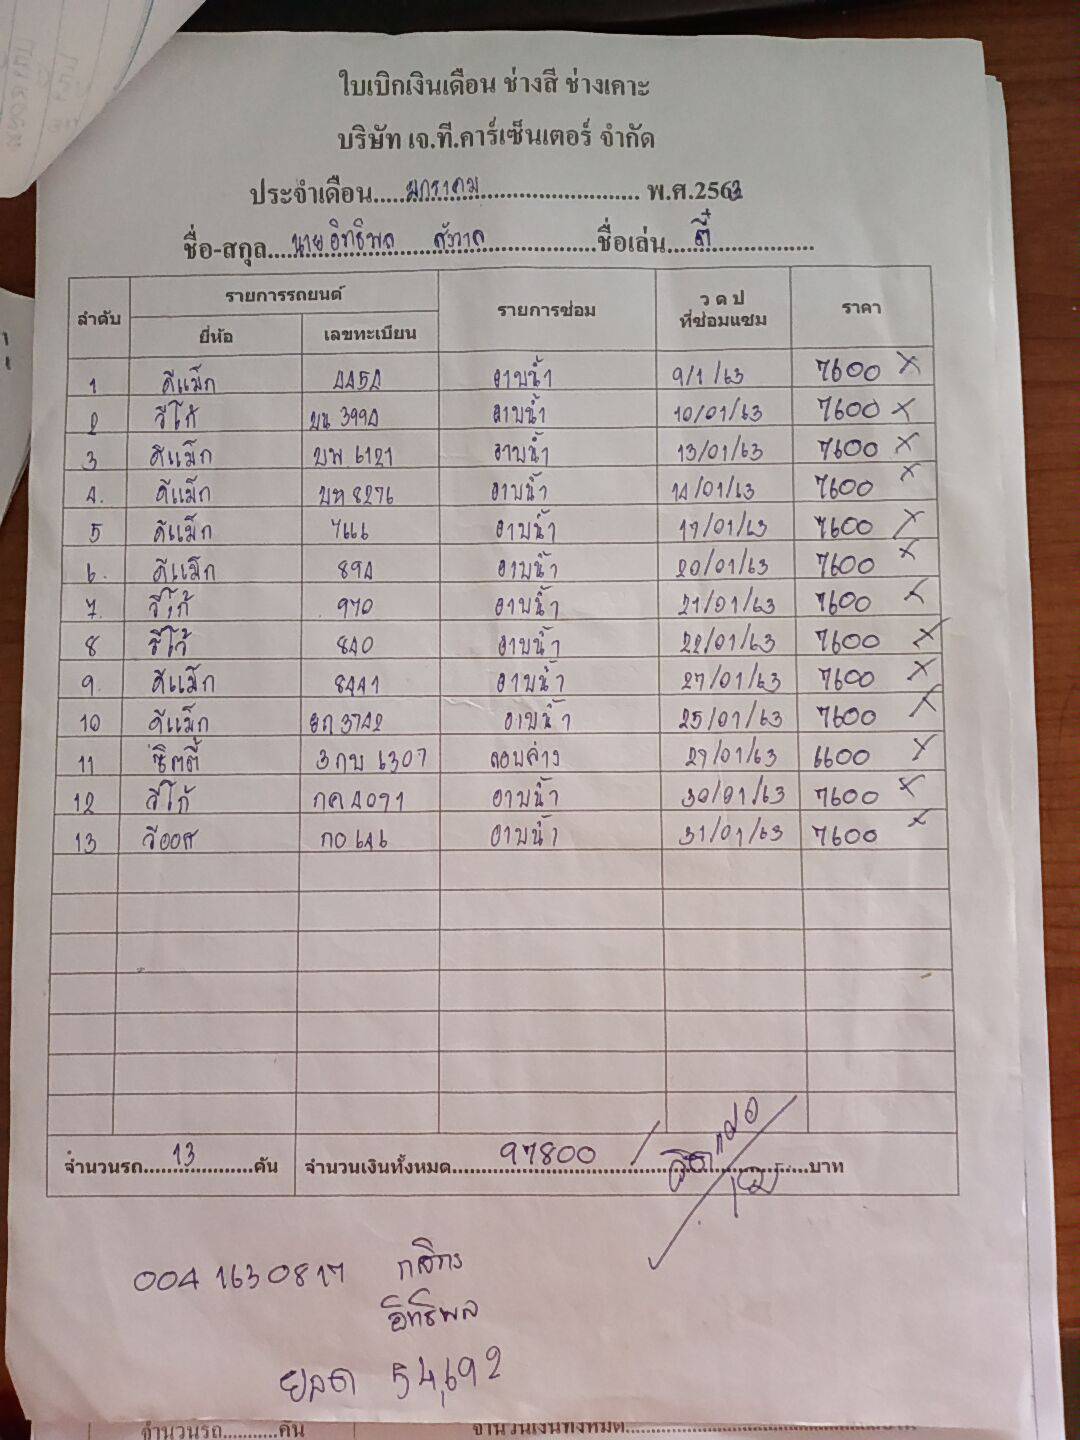 ใบเบิกเงินเดือน ช่างสี ช่างเคาะ
บริษัท เจ.ที.คาร์เซ็นเตอร์ จำกัด
ประจำเดือน.....มกราคม..........พ.ศ.2563
ชื่อ-สกุล...นาย อิทธิพล สังวาล..........ชื่อเล่น....ตี๋..........
ลำดับ รายการรถยนต์ รายการซ่อม ว ด ป ที่ซ่อมแซม ราคา
ยี่ห้อ เลขทะเบียน
1 ดีแม็ก 4454 อาบน้ำ 9/1/63 7600 X
2 วีโก้ บน 3994 อาบน้ำ 10/01/63 7600 X
3 ดีแม็ก บพ 6121 อาบน้ำ 13/01/63 7600 X
4. ดีแม็ก บท 8276 อาบน้ำ 14/01/63 7600 X
5 ดีแม็ก 7666 อาบน้ำ 17/01/63 7600 X
6. ดีแม็ก 894 อาบน้ำ 20/01/63 7600 X
7. วีโก้ 970 อาบน้ำ 21/01/63 7600 X
8 วีโก้ 840 อาบน้ำ 22/01/63 7600 X
9. ดีแม็ก 8441 อาบน้ำ 27/01/63 7600 X
10 ดีแม็ก 3742 อาบน้ำ 25/01/63 7600 X
11 ซิตตี้ 3กบ 6307 ตอนล่าง 29/01/63 6600 X
12 วีโก้ กค 4071 อาบน้ำ 30/01/63 7600 X
13 วีออส กอ 646 อาบน้ำ 31/01/63 7600 X
จำนวนรถ.....13..........คัน จำนวนเงินทั้งหมด.....97800..........บาท
004 1630817 กสิกร
อิทธิพล
ยอด 54,692
จำนวนรถ...........คัน จำนวนเงินทั้งหมด..........